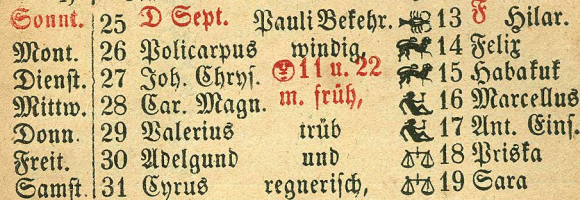 Sonnt. 25 D Sept. Pauli Bekehr. 13 F Hilar.
Mont. 26 Policarpus windig, 14 Felix
Dienst. 27 Joh. Chrys. 11 u. 22 15 Habakuk
Mittw. 28 Car. Magn. m. früh, 16 Marcellus
Donn. 29 Valerius trüb 17 Ant. Eins.
Freit. 30 Adelgund und 18 Priska
Samst. 31 Cyrus regnerisch, 19 Sara